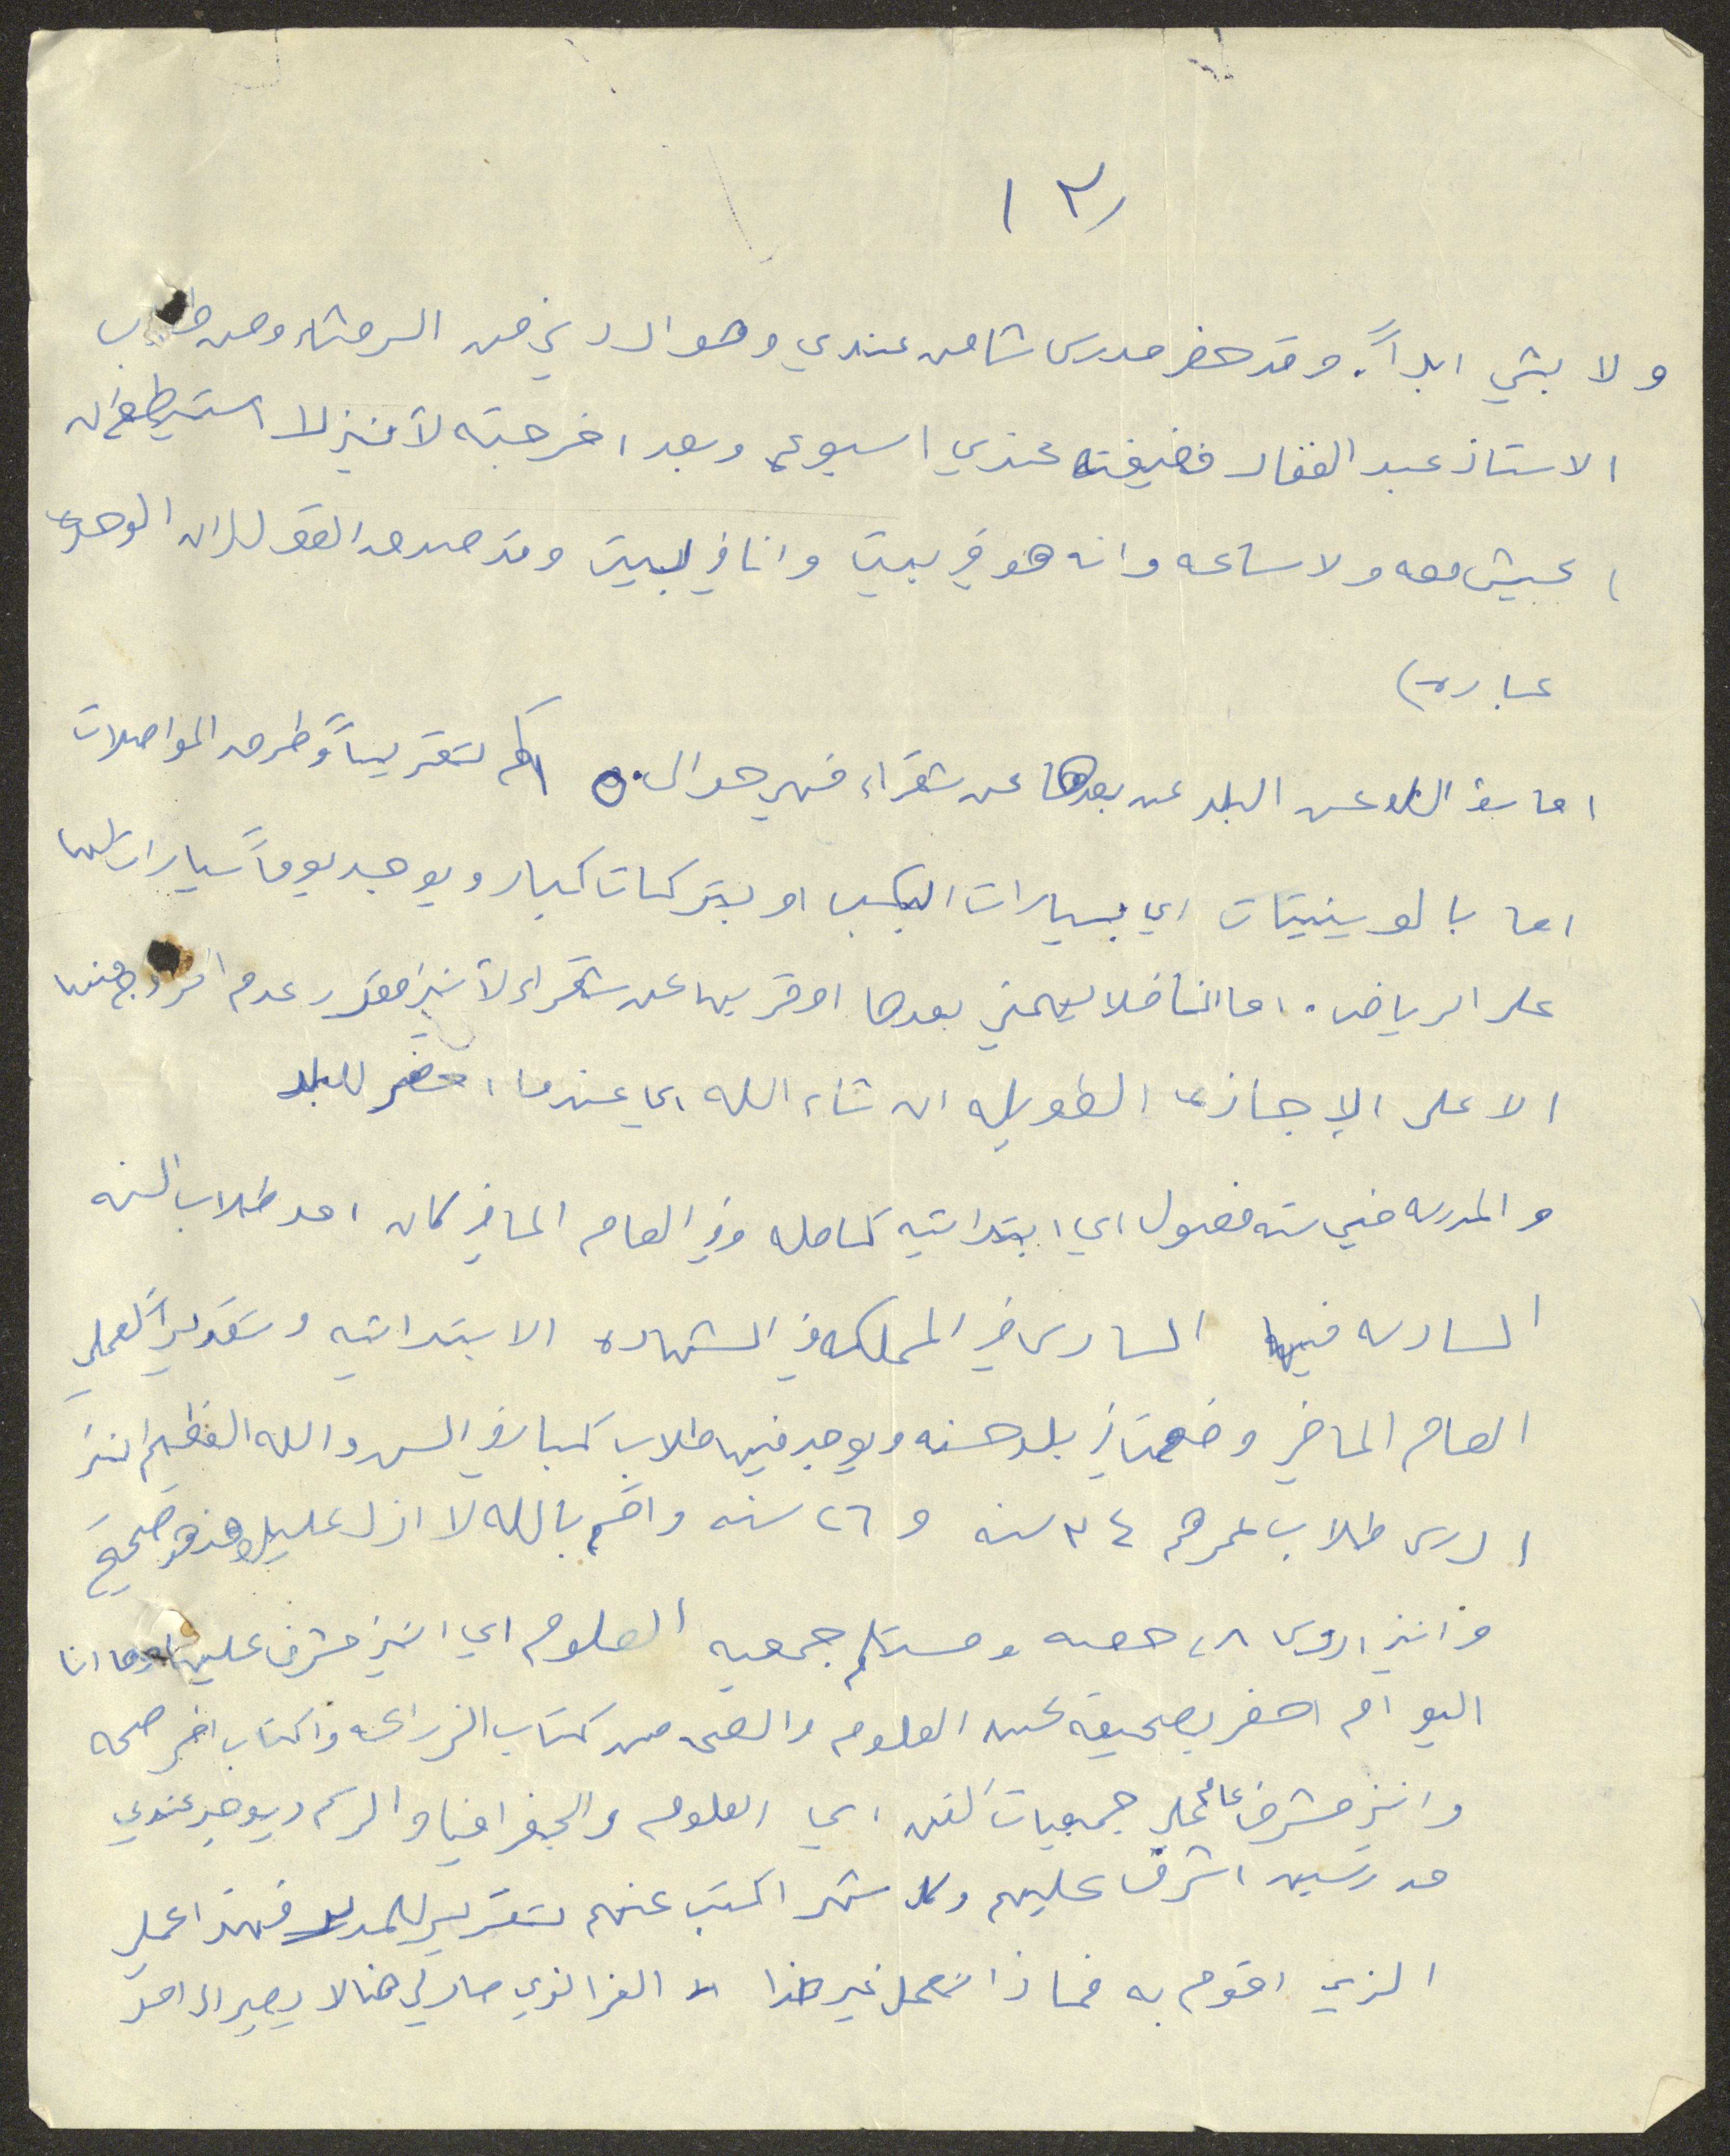 / ٣ /
ولا بشي ابداً. وقد حضر مدرس ثامن عندي وهو اردني من الرمثا ومن طلاب
الاستاذ عبد الغفار فضيفته عندي اسبوع وبعد اخرجته لأنني لا استيطع ان
اعيش معه ولا ساعه وانه هو في بيت وانا في البيت وقد صدق القول ان الوحده
عباده)
اما سؤالك عن البلد عن بعدها عن شقراء فهي حوالى ٥٠ كم تقريباً وطرق المواصلات
اما بالونيتات اي بسيارات البكب او بتركات كبار ويوجد يومياً سيارات
على الرياض. اما انا فلا يهمني بعدها او قربها عن شقراء لأنني مقرر عدم الخروج منها
الا على الإجازه الطويله ان شاء الله اي عندما احضر للبلد
والمدرسه فهي سته فصول اي ابتدائيه كامله وفي العام الماضي كان احد طلاب السنه
السادسه فيها السادس في المملكه في الشهاده الابتدائيه وتقديراً لعملي
العام الماضي وضعت في بلد حسنه ويوجد فيها طلاب كبار في السن والله العظيم انني
ادرس طلاب عمرهم ٣٤ سنه و ٢٦ سنه واقسم بالله لا ازل عليك وهذه صحيح
وانني ادرس ٢٨ حصه ومستلم جمعيه العلوم اي انني مشرف عليها وها انا
اليوم احضر بصحيفة عن العلوم والصحه من كتاب الزراعه واكتاب اخر صحه
وانني مشرف عام على جمعيات الفن اي العلوم والجغرافيا والرسم ويوجد عندي
مدرسين اشرف عليهم وكل شهر اكتب عنهم تقرير للمدير فهذا عملي
الذي اقوم به فماذا نعمل غير هذا الا العز الذي صار لي هنا لا يصير الى احد